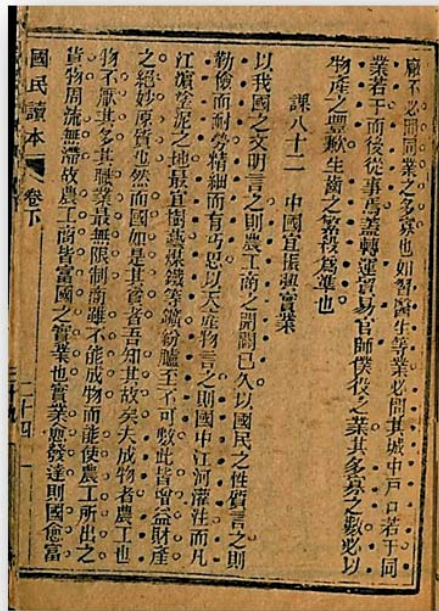 廠不必問同業之多寡也如習醫生等業必問其城中戶口若干同
業若干而後從事焉蓋轉運貿易官師僕役之業其多寡之數必以
物產之豐歉生齒之繁殺爲準也
課八十二 中國宜振興實業
以我國之文明言之則農工商之開闢已久以國民之性質言之則
勤儉而耐勞精細而有巧思以天產物言之則國中江河灌注而凡
江濱塗泥之地最宜樹蓺煤鐵等鑛紛臚至不可數此皆增益財產
之絕妙原質也然而國如是其貧者吾知其故矣夫成物者農工也
物不厭其多其職業最無限制商雖不能成物而能使農工所出之
貨物周流無滯故農工商皆富國之實業也實業愈發達則國愈富
國民讀本 卷下 二十四